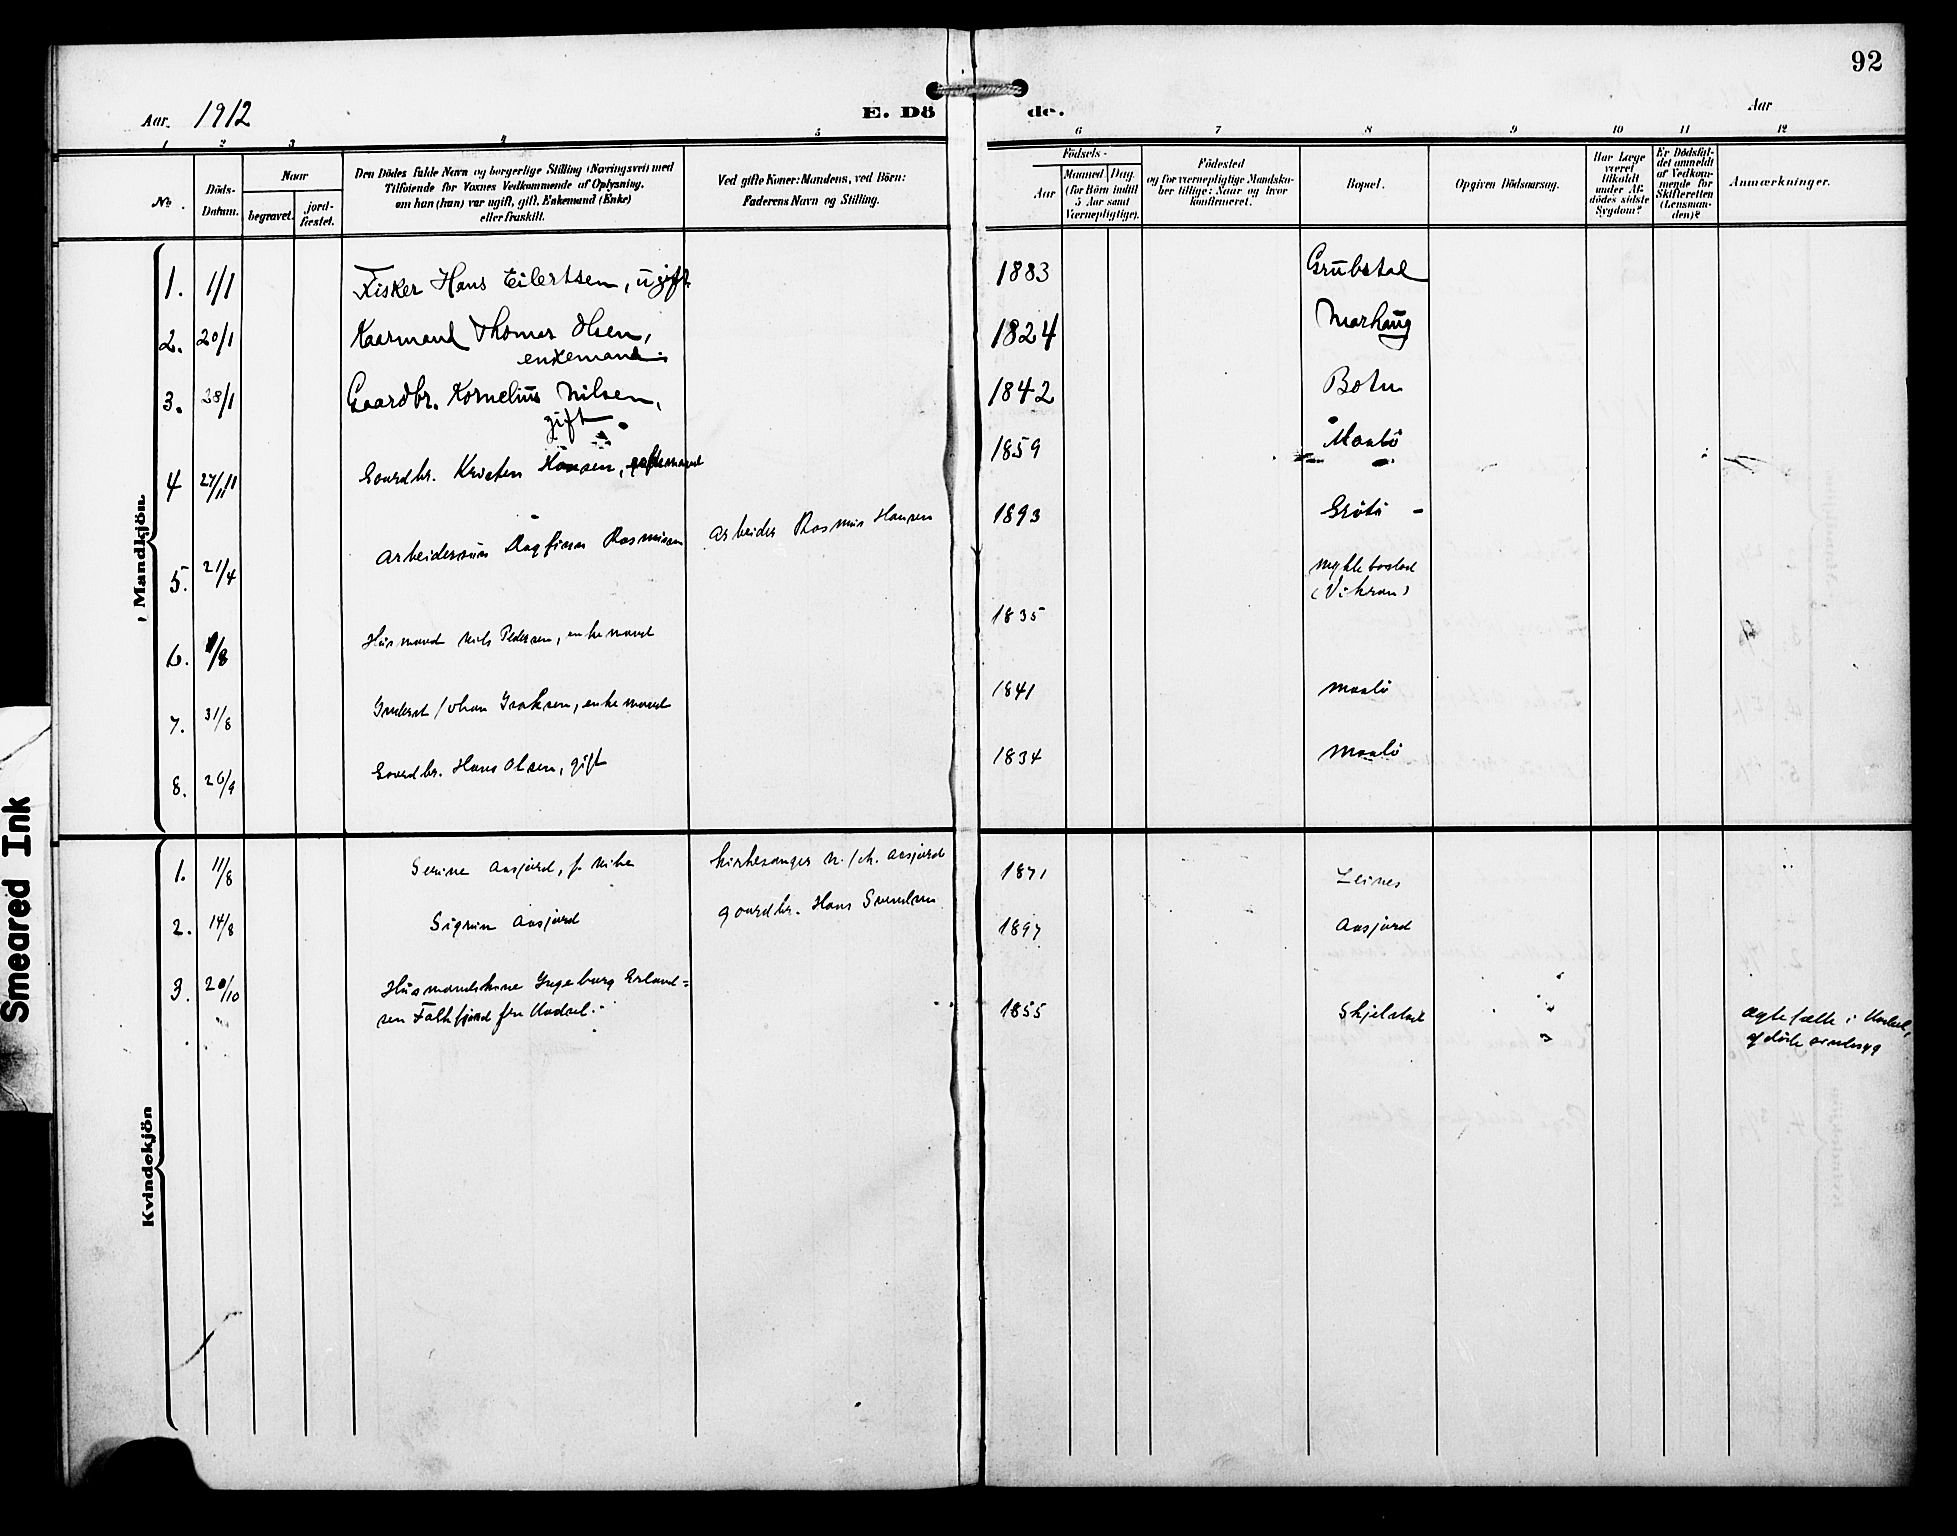 92
Aar. 1912
E. Dö de.
Aar
1 2 3 4 5 6 7 8 9 10 11 12
No.
Döds-
Datum.
Naar
begravet.
jord-
fæstet.
Den Dödes fulde Navn og borgerlige Stilling (Næringsvei) med
Tilföiende for Voxnes Vedkommende af Oplysning,
om han (hun) var ugift, gift, Enkemand (Enke)
eller fraskilt.
Ved gifte Koner: Mandens, ved Börn:
Faderens Navn og Stilling.
Födsels-
Aar
Maaned Dag
(for Börn indtil
5 Aar samt
Værnepligtige).
Födested
og for værnepligtige Mandsku-
ber tillige: Naar og hvor
konfirmeret.
Bopæl.
Opgiven Dödsaarsag.
Har Læge
været
tilkaldt
under Af-
dödes sidste
Sygdom?
Er Dödsfal-
det anmeldt
af Vedkom-
mende for
Skifteretten
(Lensman-
den)?
Anmærkninger.
Mandkjön
1. 1/1 Fisker Hans Eilertsen, ugift 1883
2. 20/1 Kaarmand Thomas Olsen,
enkemand. 1824 Marhaug
3. 28/1 Gaardbr. Kornelius Nilsen,
gift. 1842 Botn
4 27/11 Gaardbr. Kristen Hansen, 1859 Maalö
5. 21/4 Arbeidersøn Dagfinn Rasmussen Arbeider Rasmus Hansen 1893 Gröto
6. /8 Husmand Nils Pedersen, enkemand 1835 Myklebostad
(Vikran)
7. 31/8 Inderst Johan Isaksen, enkemand 1841 Maalö
8. 26/9 Gaardbr. Hans Olsen, gift 1834 Maalö
Kvindekjön
1. 11/8 Serine Aasjord, f. kirkesanger Aasjord 1871 Leines
2. 14/8 Sigrun Aasjord gaardbr. Hans Svendsen 1897 Aasjord
3. 20/10 Husmandskone Ingeborg Erland-
sen Falkfjord fra Hadsel. 1855 Skjelstad
i Hadsel,
Smeared Ink